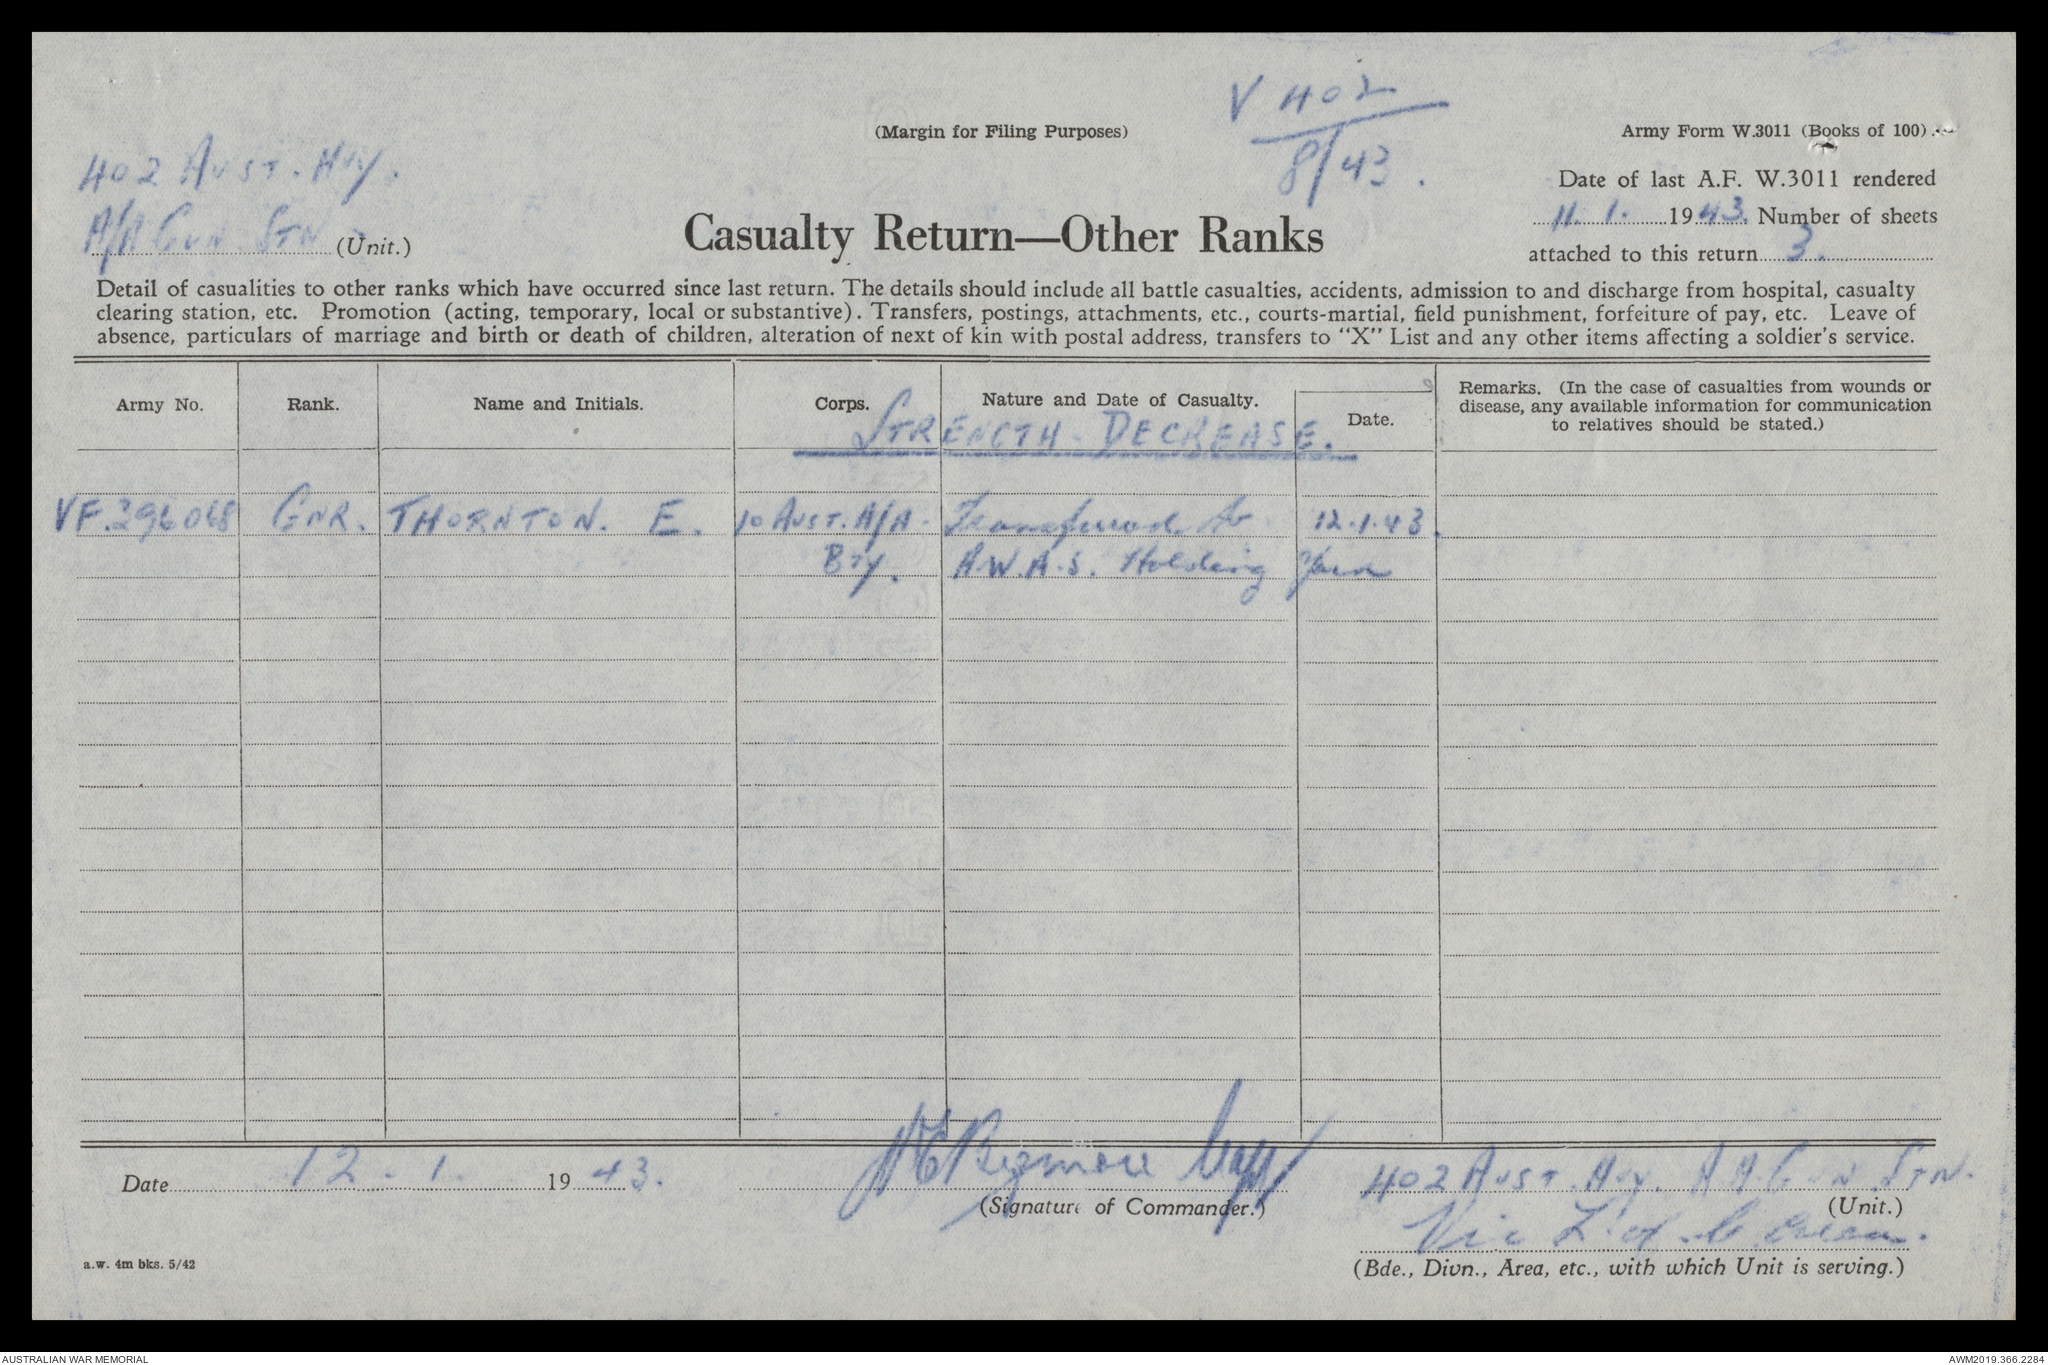 V 402
8/43.
(Margin for Filing Purposes)
Army Form W.3011 (Books of 100).
402 AUST. HVY.
A/A GUN STN (Unit.)
Casualty Return—Other Ranks
Date of last A.F. W.3011 rendered
11. 1. 1943. Number of sheets
attached to this return 3.
Detail of casualities to other ranks which have occurred since last return. The details should include all battle casualties, accidents, admission to and discharge from hospital, casualty
clearing station, etc. Promotion (acting, temporary, local or substantive). Transfers, postings, attachments, etc., courts-martial, field punishment, forfeiture of pay, etc. Leave of
absence, particulars of marriage and birth or death of children, alteration of next of kin with postal address, transfers to "X" List and any other items affecting a soldier's service.
Army No. Rank. Name and Initials. Corps. Nature and Date of Casualty. Date. Remarks. (In the case of casualties from wounds or
disease, any available information for communication
to relatives should be stated.)
STRENGTH DECREASE.
VF.396068 GNR. THORNTON. E. 10 AUST. A/A. Transferred to 12.1.43.
BTY. A.W.A.S. Holding
Date 12. 1. 1943.
(Signature of Commander.)
402 AUST. HVY. A A. GUN STN.
(Unit.)
Vic L. of C. Area.
(Bde., Divn., Area, etc., with which Unit is serving.)
a.w. 4m bks. 5/42
AUSTRALIAN WAR MEMORIAL
AWM2019.366.2284